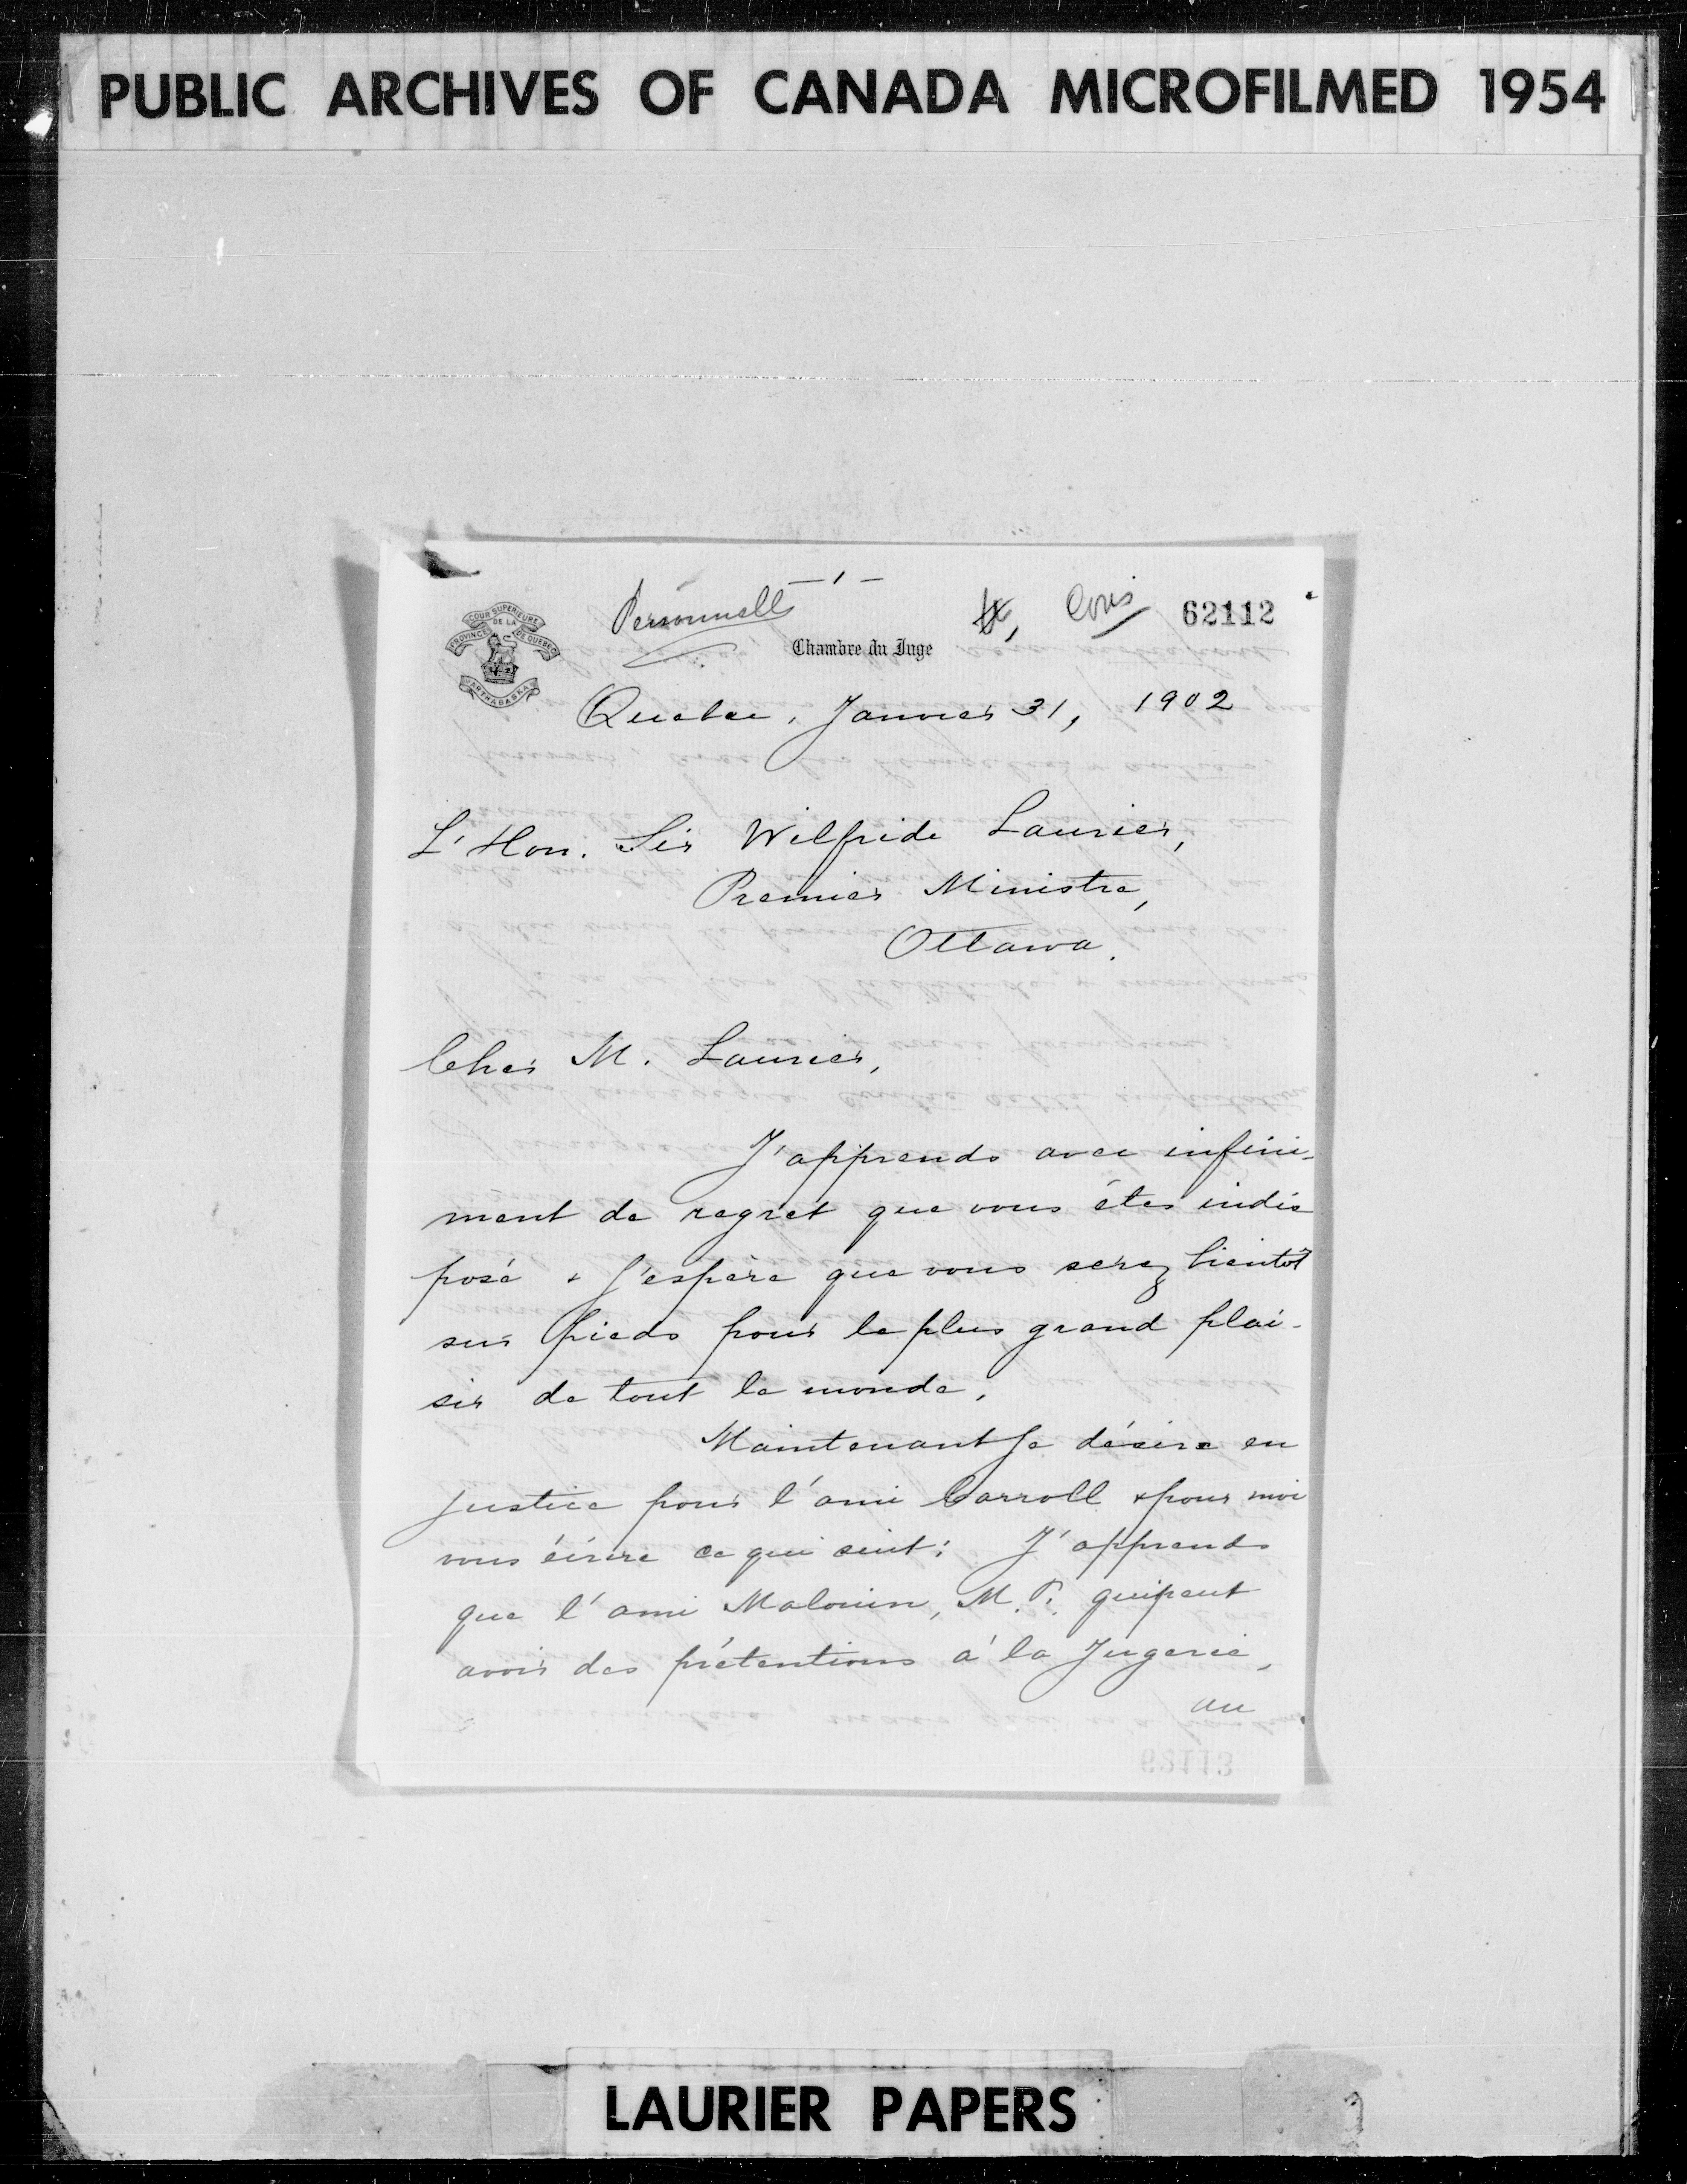 PUBLIC ARCHIVES OF CANADA MICROFILMED 1954
- 1 -
Personnelle
62112
COUR SUPERIEURE
DE LA
PROVINCE DE QUEBEC
ARTHABASKA
Chambre du Juge
Quebec, Janvier 31, 1902
L'Hon. Sir Wilfride Laurier,
Premier Ministre,
Ottawa.
Cher M. Laurier,
J'apprends avec infini-
ment de regret que vous êtes indis
posé & j'espère que vous serez bientôt
sur pieds pour le plus grand plai-
sir de tout le monde.
Maintenant je désire en
justice pour l'ami Carroll & pour moi
vous écrire ce qui suit: J'apprends
que l'ami Malouin, M.P. qui peut
avoir des prétentions à la Jugerie,
au
62113
LAURIER PAPERS